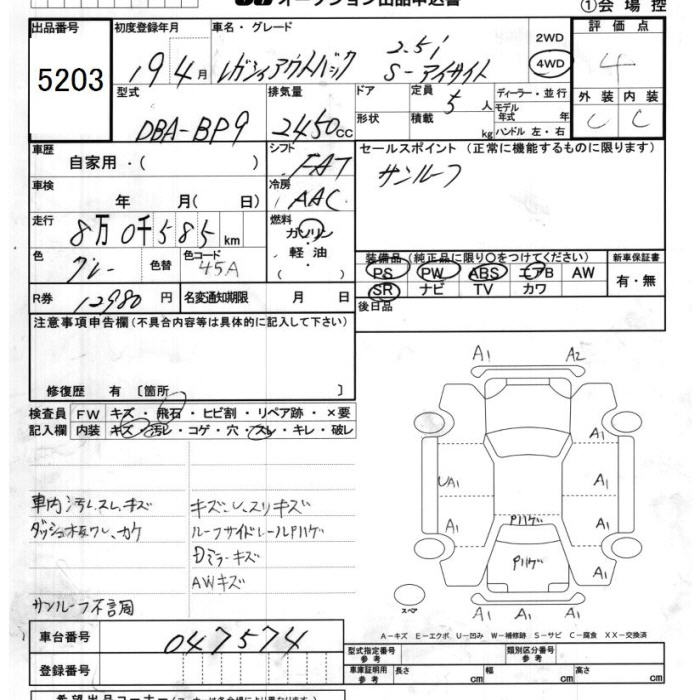 オークション出品申込書
①会場控
出品番号
5203
初度登録年月
19 4月
車名・グレード
レガシィアウトバック 2.5i
S-アイサイト
2WD
4WD
評価点
4
外装 内装
C C
型式
DBA-BP9
排気量
2450cc
ドア
形状
定員 5人
積載 kg
ディーラー・並行
モデル年式 年
ハンドル 左・右
車歴
自家用・( )
シフト
FAT
セールスポイント (正常に機能するものに限ります)
サンルーフ
車検
年 月( 日)
冷房
AAC
走行
8万0千585km
燃料
ガソリン
軽油
( ・ )
色
グレー
色替
色コード
45A
装備品 (純正品に限り○をつけてください)
PS PW ABS エアB AW
SR ナビ TV カワ
新車保証書
有・無
R券 12980円
名変通知期限 月 日
後日品
注意事項申告欄(不具合内容等は具体的に記入して下さい)
修復歴 有 [箇所 ]
検査員記入欄
FW キズ・飛石・ヒビ割・リペア跡・×要
内装 キズ・汚レ・コゲ・穴・スレ・キレ・破レ
車内汚レ、スレ、キズ
ダッシュ板ワレ、カケ
サンルーフ不言周
キズ、U、スリキズ
ルーフサイドレールPハゲ
Dミラーキズ
AWキズ
A1 A2
A1
UA1 A1
A1 Pハゲ A1
Pハゲ
A1 A1
A1 A1 A1
スペア
A-キズ E-エクボ U-凹み W-補修跡 S-サビ C-腐食 XX-交換済
車台番号
047574
登録番号
型式指定番号 参考
類別区分番号 参考
車庫証明用 参考
長さ cm
幅 cm
高さ cm
希望出品コーナー